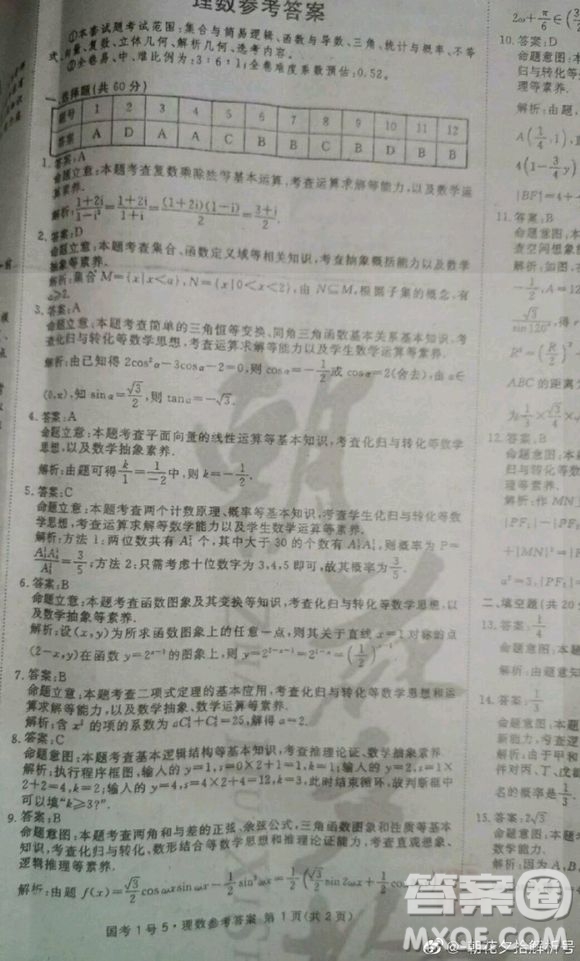 理数参考答案
①本套试题考试范围:集合与简易逻辑、函数与导数、三角、统计与概率、不等
式、向量、复数、立体几何、解析几何、选考内容。
②全卷易、中、难比例为:3:6:1;全卷难度系数预估:0.52。
一、选择题(共60分)
题号 1 2 3 4 5 6 7 8 9 10 11 12
答案 A D A A C B B C B D B B
1. 答案:A
命题立意:本题考查复数乘除法等基本运算,考查运算求解等能力,以及数学运
算素养.
解析:(1+2i)/(1-i³)=(1+2i)/(1+i)=(1+2i)(1-i)/2=(3+i)/2.
2. 答案:D
命题立意:本题考查集合、函数定义域等相关知识,考查抽象概括能力以及数学
抽象等素养.
解析:集合M={x|x<a},N={x|0<x<2},由N⊆M,根据子集的概念,有
a≥2.
3. 答案:A
命题立意:本题考查简单的三角恒等变换、同角三角函数基本关系基本知识,考
查化归与转化等数学思想,考查运算求解等能力以及学生数学运算等素养.
解析:由已知得2cos²α-3cosα-2=0,则cosα=-1/2或cosα=2(舍去),由α∈
(0,π),知sinα=√3/2,则tanα=-√3.
4. 答案:A
命题立意:本题考查平面向量的线性运算等基本知识,考查化归与转化等数学
思想,以及数学抽象素养.
解析:由题可得k/1=1/-2中,则k=-1/2.
5. 答案:C
命题立意:本题考查两个计数原理、概率等基本知识,考查学生化归与转化等数
学思想,考查运算求解等数学能力以及学生数学运算等素养.
解析:方法1:两位数共有 个,其中大于30的个数有 ,则概率为P=
=3/5;方法2:只需考虑十位数字为3,4,5即可,故其概率为3/5.
6. 答案:B
命题立意:本题考查函数图象及其变换等知识,考查化归与转化等数学思想,以
及数学抽象等素养.
解析:设(x,y)为所求函数图象上的任意一点,则其关于直线x=1对称的点
(2-x,y)在函数y=2ˣ⁻¹的图象上,则y=2²⁻ˣ⁻¹=2¹⁻ˣ=(1/2)ˣ⁻¹.
7. 答案:B
命题立意:本题考查二项式定理的基本应用,考查化归与转化等数学思想和运
算求解等能力,以及数学运算等素养.
解析:含x²的项的系数为 =25,解得a=2.
8. 答案:C
命题意图:本题考查基本逻辑结构等基本知识,考查推理论证、数学抽象素养.
解析:执行程序框图,输入的y=1,s=0×2+1=1,k=1;输入的y=2,s=1×
2+2=4,k=2;输入的y=4,s=4×2+4=12,k=3,此时结束循环,故判断框中
可以填"k≥3?".
9. 答案:B
命题意图:本题考查两角和与差的正弦、余弦公式,三角函数图象和性质等基本
知识,考查化归与转化、数形结合等数学思想和推理论证能力,考查直观想象、
逻辑推理等素养.
解析:由题f(x)=√3/2cosωxsinωx-1/2sin²ωx=1/2(√3/2sin2ωx+
国考1号5·理数参考答案 第1页(共2页)
2ω+π/6∈
10. 答案:D
命题意图:本
归与转化等
理等素养.
解析:由题,
A(1/4,1),
4(1-3/4y)
|BF|=4+
11. 答案:B
命题意图:本
查空间想象
解析:如图,在
-1/2,A=12
√3/sin120°,得
R²=(R/2)²
ABC的距离为
为1/3×√3/4×
12. 答案:B
命题意图:本
归与转化等
等素养.
解析:作MN
|PF₁|-|PF₂|
+|MN|²=
a²=3,|PF₁|
二、填空题(共20分
13. 答案:1/4
命题意图:本
解析:由题意知
14. 答案:1/3
命题意图:
新能力.
解析:由于甲和
件对丙、丁、戊
名的概率是1/3
15. 答案:2√3
命题意图:
能力.
答案圈
@-朝花夕拾解析号